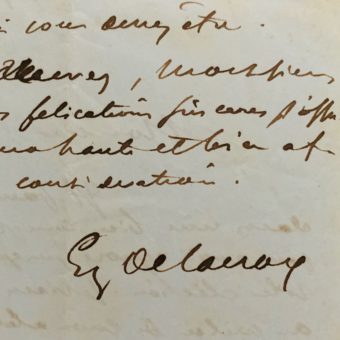 vous
Recevez, Monsieur
felications sinceres
ma haute et bien af
consideration.
Eug Delacroix